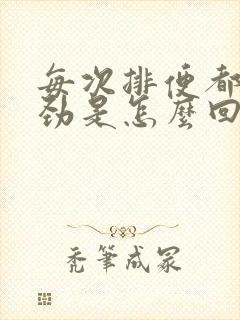 每次排便都
劲是怎麼回
禿筆成冢